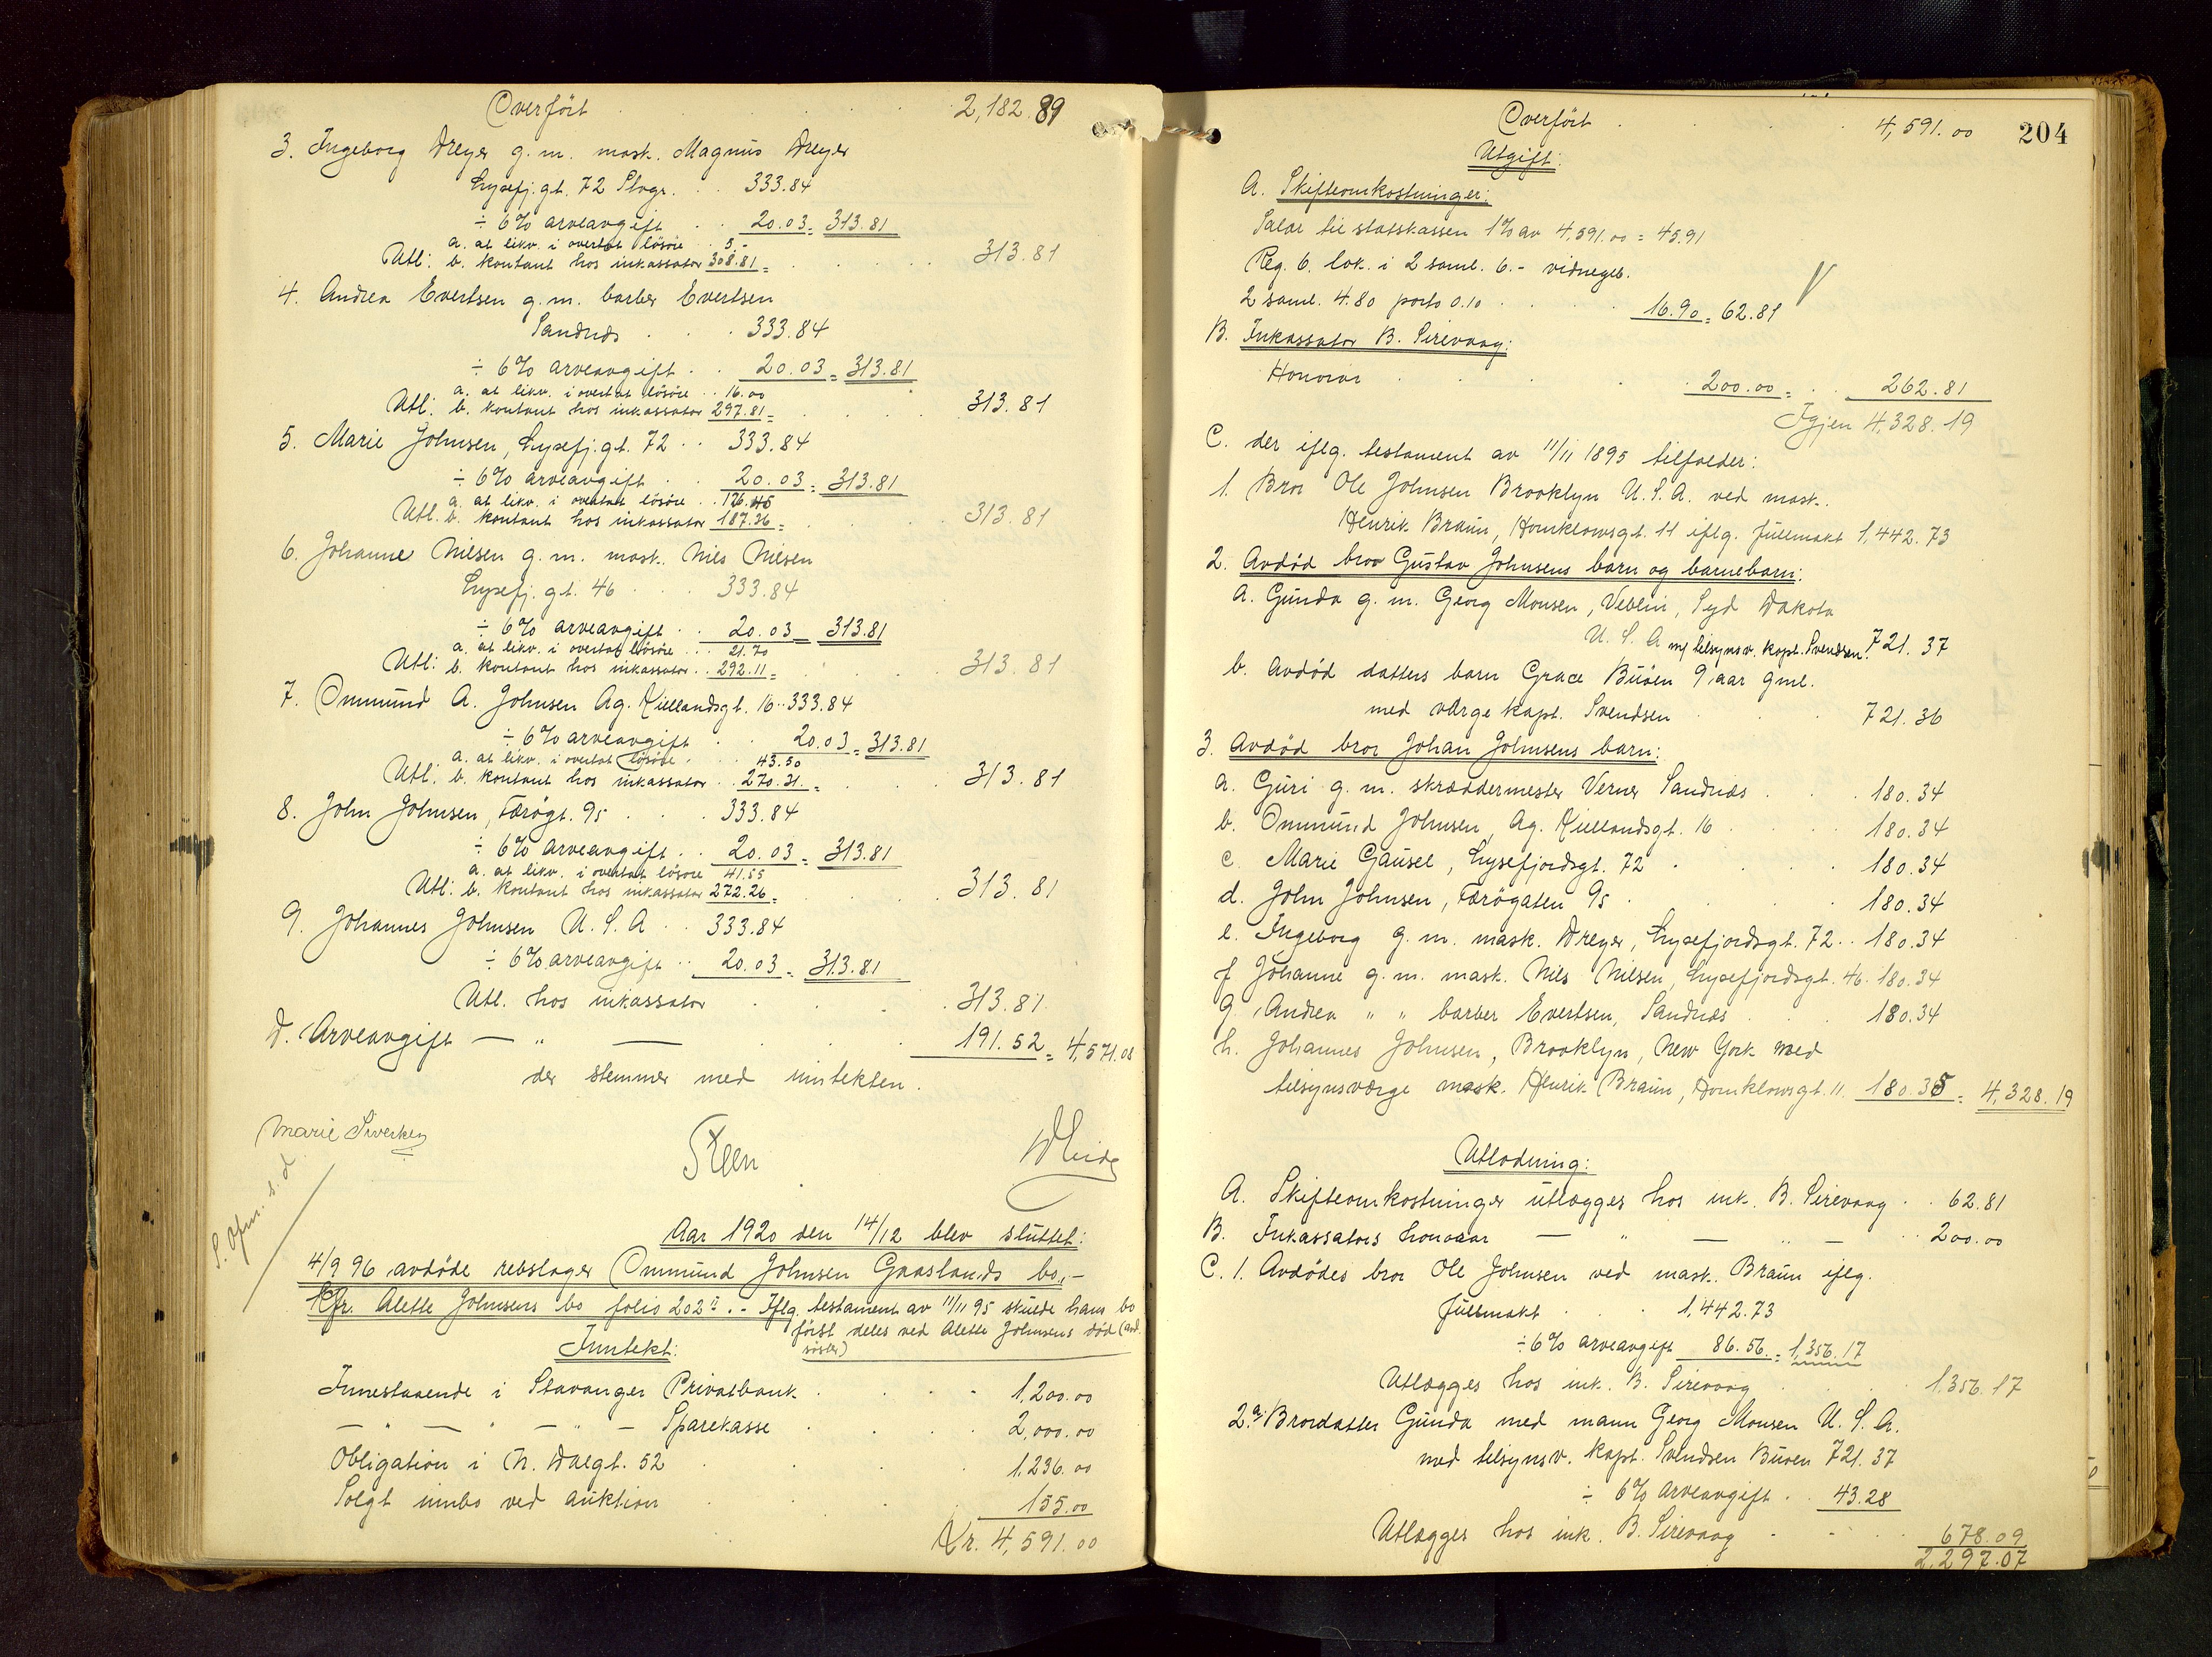 Overført 2,182.89
3. Ingeborg Dreyer g.m. mask. Magnus Dreyer
Lysefj.gt. 72 Stvgr. 333.84
÷ 6% arveavgift 20.03 = 313.81
a. at likv. i overtat lösöre 5.-
Utl: b. kontant hos inkassator 308.81 = 313.81
4. Andrea Evertsen g.m. barber Evertsen
Sandnes 333.84
÷ 6% arveavgift 20.03 = 313.81
a. at likv. i overtat lösöre 16.00
Utl: b. kontant hos inkassator 297.81 = 313.81
5. Marie Johnsen, Lysefj.gt. 72 333.84
÷ 6% arveavgift 20.03 = 313.81
a. at likv. i overtat lösöre 126.45
Utl. b. kontant hos inkassator 187.36 = 313.81
6. Johanne Nilsen g.m. mask. Nils Nilsen
Lysefj.gt. 46 333.84
÷ 6% arveavgift 20.03 = 313.81
a. at likv. i overtat lösöre 21.70
Utl: b. kontant hos inkassator 292.11 = 313.81
7. Ommund A. Johnsen Ag. Kiellandsgt. 16 333.84
÷ 6% arveavgift 20.03 = 313.81
a. at likv. i overtat lösöre 43.50
Utl: b. kontant hos inkassator 270.31 = 313.81
8. John Johnsen, Færögt. 95 333.84
÷ 6% arveavgift 20.03 = 313.81
a. at likv. i overtat lösöre 41.55
Utl: b. kontant hos inkassator 272.26 = 313.81
9. Johannes Johnsen U.S.A 333.84
÷ 6% arveavgift 20.03 = 313.81
Utl. hos inkassator 313.81
D. Arveavgift — " — 191.52 = 4,571.08
der stemmer med inntekten.
Marie Siverken
Steen
S. Opm. s. d.
Aar 1920 den 14/12 blev sluttet:
4/9 96 avdöde rebslager Ommund Johnsen Gaaslands bo,-
Kfr. Alette Johnsens bo folio 202 - Iflg. testament av 11/11 95 skulde hans bo
först deles ved Alette Johnsens död (avd.
söster)
Inntekt:
Innestaaende i Stavanger Privatbank 1,200.00
— " — " — " — Sparekasse 2,000.00
Obligation i N. Dalgt. 52 1,236.00
Solgt innbo ved auktion 155.00
Kr. 4,591.00
204
Overført 4,591.00
Utgift:
A. Skifteomkostninger:
Salær til statskassen 1% av 4,591.00 = 45.91
Reg. 6. lok. i 2 saml. 6.- vidnegeb.
2 saml. 4.80 porto 0.10 16.90 = 62.81
B. Inkassator B. Sirevaag:
Honorar 200.00 = 262.81
Igjen 4,328.19
C. der iflg. testament av 11/11 1895 tilfalder:
1. Bror Ole Johnsen Brooklyn U.S.A. ved mask.
Henrik Braun, Homklowsgt. 11 iflg. fullmakt 1,442.73
2. Avdöd bror Gustav Johnsens barn og barnebarn:
A. Gunda g.m. Georg Monsen, Veblin, Syd Dakota
U.S.A m/ tilsynsv. kapt. Svendsen 721.37
b. Avdöd datters barn Grace Buöen 9 aar gml.
med værge kapt. Svendsen 721.36
3. Avdöd bror Johan Johnsens barn:
a. Guri g.m. skræddermester Verner Sandnes 180.34
b. Ommund Johnsen, Ag. Kiellandsgt. 16 180.34
c. Marie Gausel, Lysefjordsgt. 72 180.34
d. John Johnsen, Færögaten 95 180.34
e. Ingeborg g.m. mask. Dreyer, Lysefjordsgt. 72 180.34
f Johanne g.m. mask. Nils Nilsen, Lysefjordsgt. 46 180.34
g. Andrea " " barber Evertsen, Sandnes 180.34
h. Johannes Johnsen, Brooklyn, New York med
tilsynsværge mask. Henrik Braun, Homklowsgt. 11. 180.35 = 4,328.19
Utlodning:
A. Skifteomkostninger utlægges hos ink. B. Sirevaag 62.81
B. Inkassators honorar — " — " — 200.00
C. 1. Avdödes bror Ole Johnsen ved mask. Braun iflg.
fullmakt 1,442.73
÷ 6% arveavgift 86.56 = 1,356.17
Utlægges hos ink. B. Sirevaag 1,356.17
2 a/ Brordatter Gunda med mann Georg Monsen U.S.A.
med tilsynsv. kapt. Svendsen Buöen 721.37
÷ 6% arveavgift 43.28
Utlægges hos ink. B. Sirevaag 678.09
2,297.07